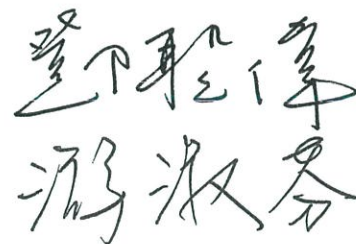 鄧聖偉
游淑芬